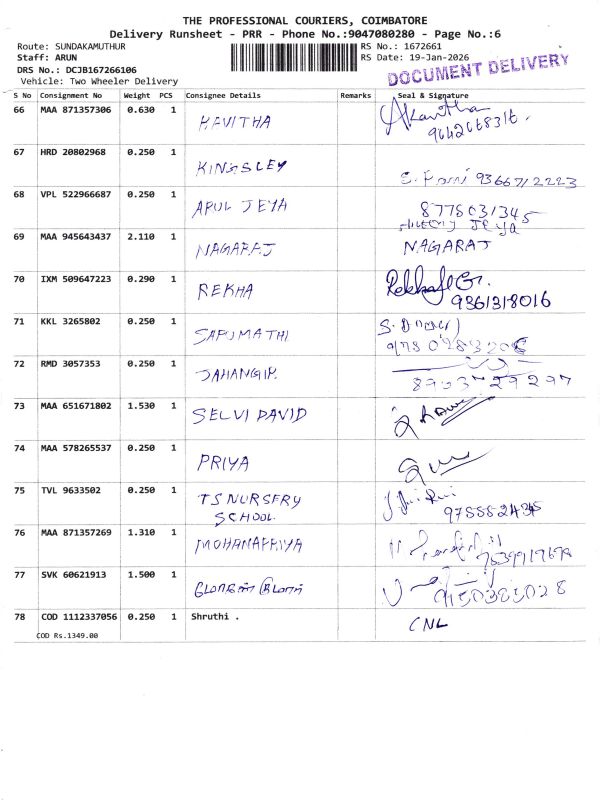 THE PROFESSIONAL COURIERS, COIMBATORE
Delivery Runsheet - PRR - Phone No.:9047080280 - Page No.:6
Route: SUNDAKAMUTHUR RS No.: 1672661
Staff: ARUN RS Date: 19-Jan-2026
DRS No.: DCJB167266106
Vehicle: Two Wheeler Delivery
DOCUMENT DELIVERY
S No Consignment No Weight PCS Consignee Details Remarks Seal & Signature
66 MAA 871357306 0.630 1 KAVITHA
67 HRD 20802968 0.250 1 KINGSLEY 9366712223
68 VPL 522966687 0.250 1 ARUL JEYA 8778031345
Jeya
69 MAA 945643437 2.110 1 NAGARAJ NAGARAJ
70 IXM 509647223 0.290 1 REKHA 9361318016
71 KKL 3265802 0.250 1 SARUMATHI
72 RMD 3057353 0.250 1 JAHANGIR 8903729297
73 MAA 651671802 1.530 1 SELVI DAVID
74 MAA 578265537 0.250 1 PRIYA
75 TVL 9633502 0.250 1 TS NURSERY
SCHOOL
76 MAA 871357269 1.310 1 MOHANAPRIYA
77 SVK 60621913 1.500 1 9150385028
78 COD 1112337056 0.250 1 Shruthi . CNL
COD Rs.1349.00